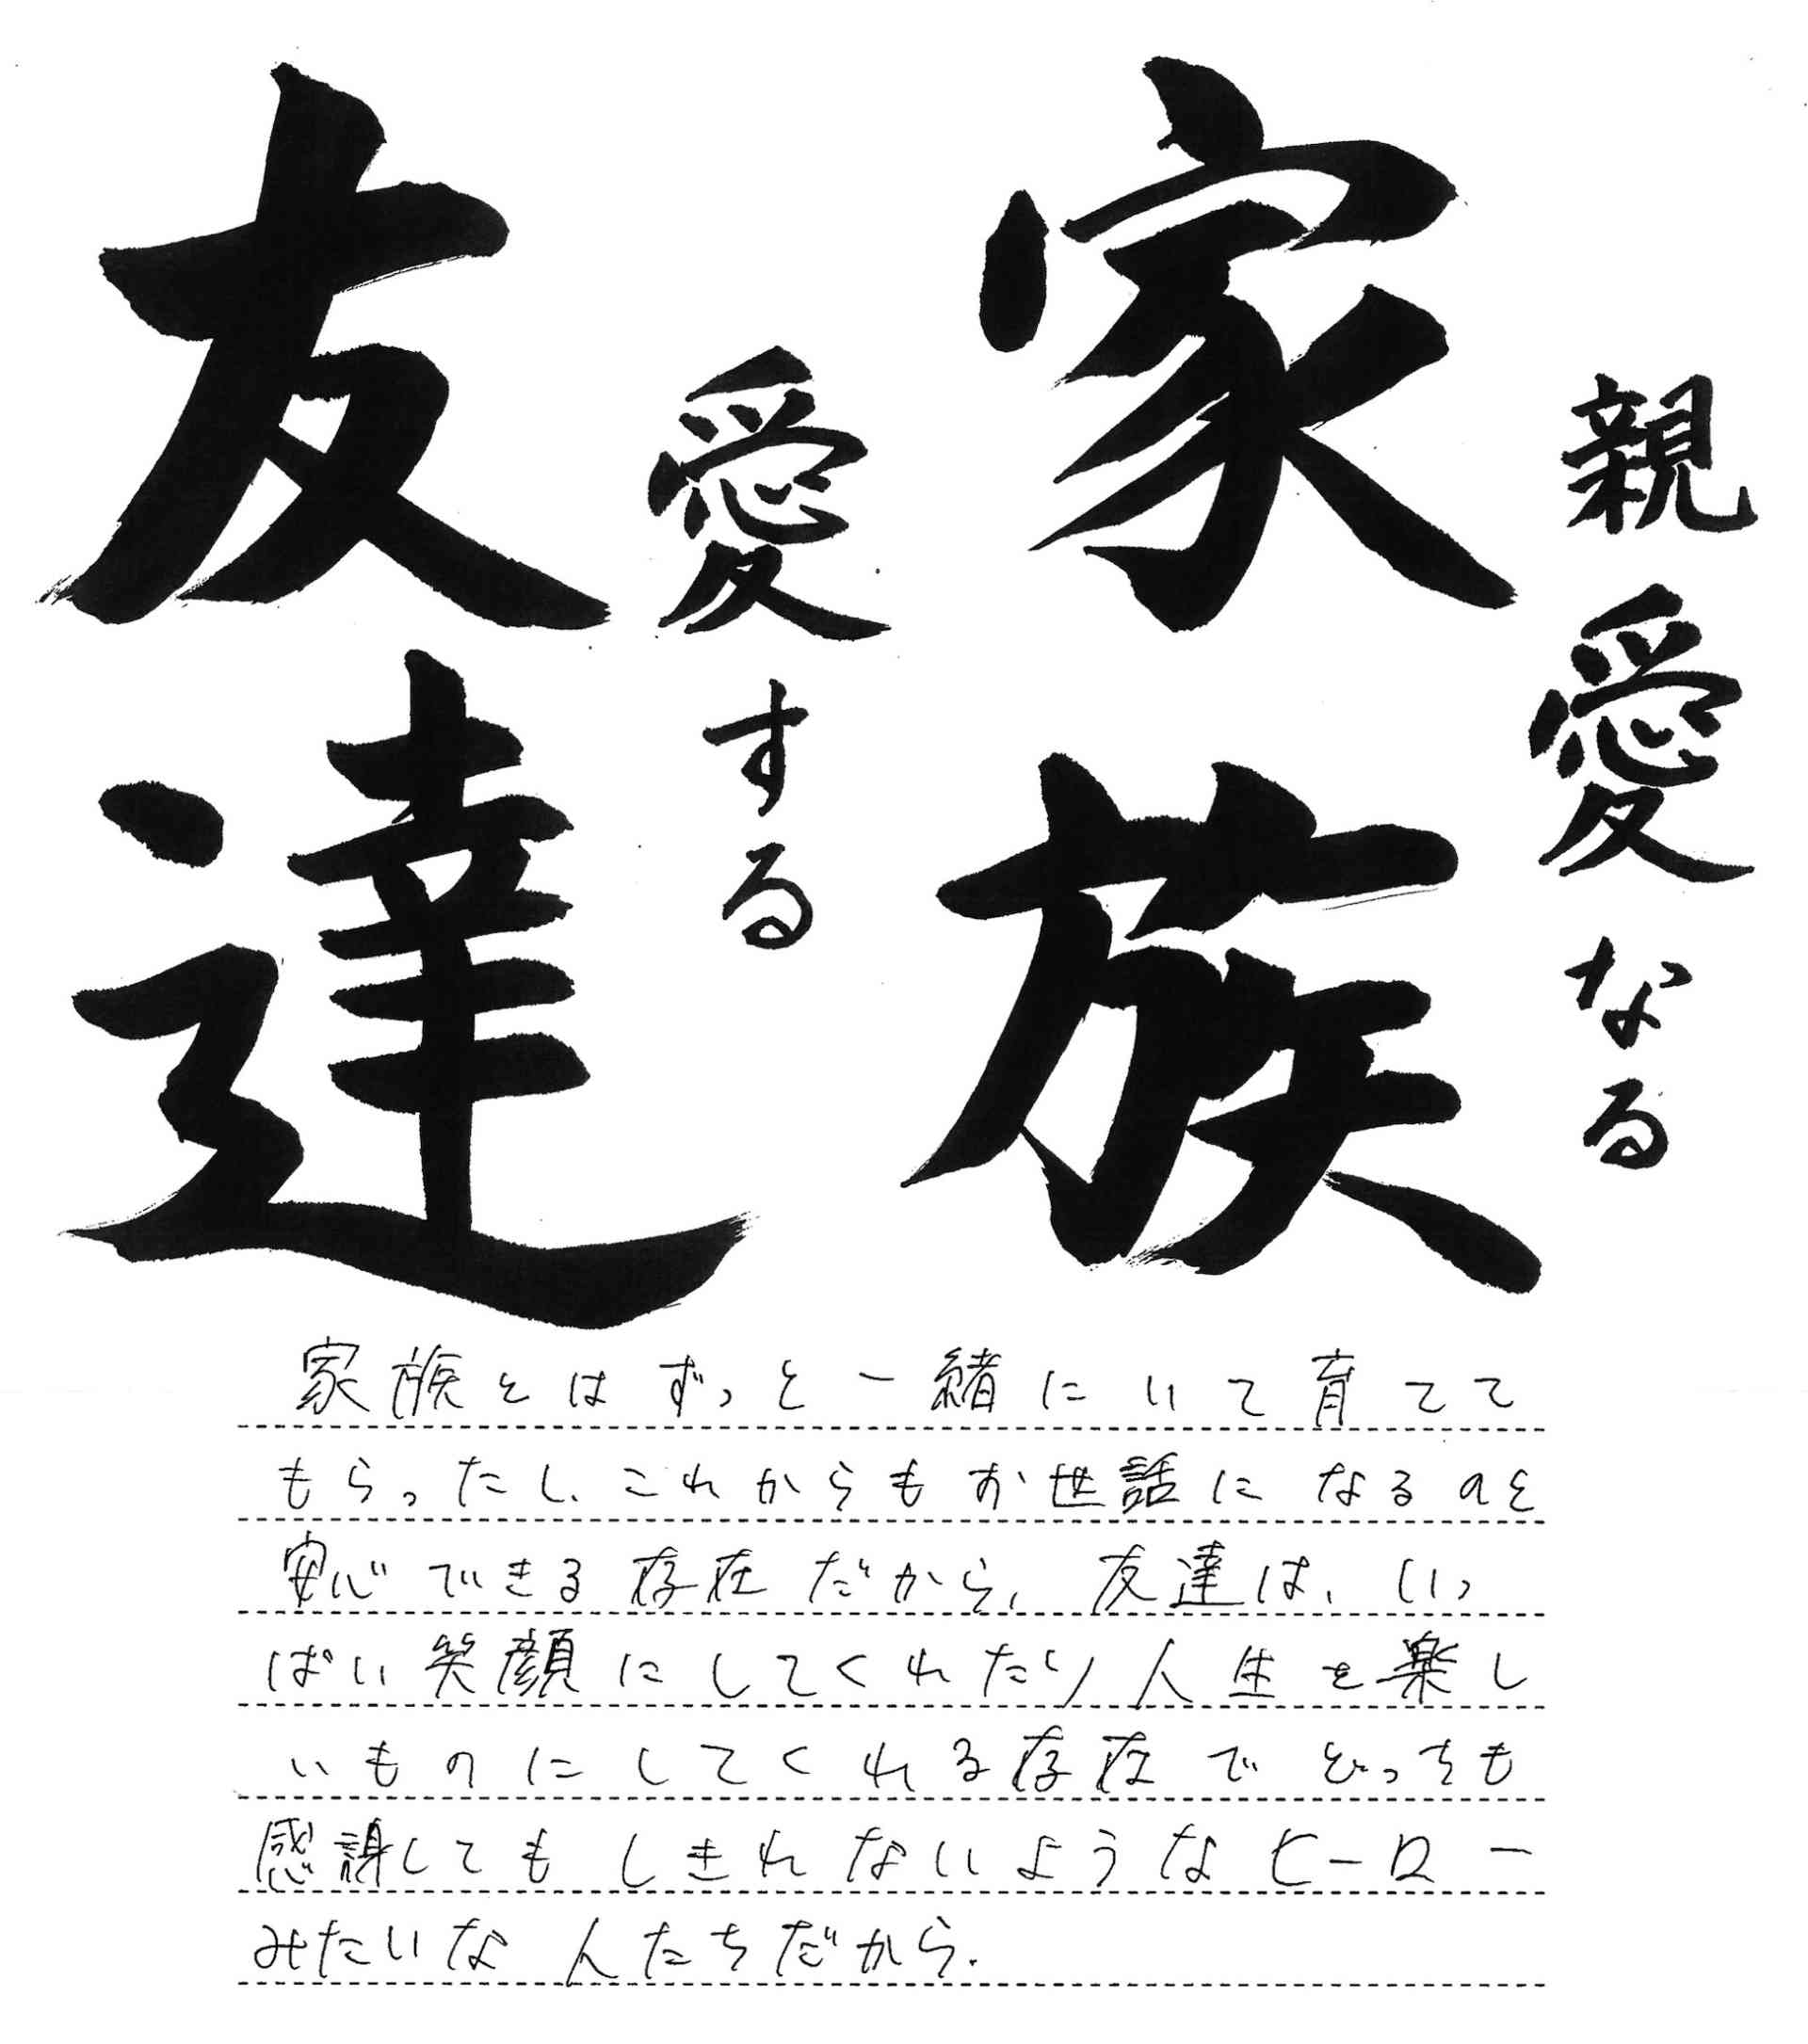 親愛なる
家族
愛する
友達
家族とはずっと一緒にいて育てて
もらったし、これからもお世話になるのと
安心できる存在だから、友達は、いっ
ぱい笑顔にしてくれたり人生を楽し
いものにしてくれる存在でどっちも
感謝してもしきれないようなヒーロー
みたいな人たちだから.